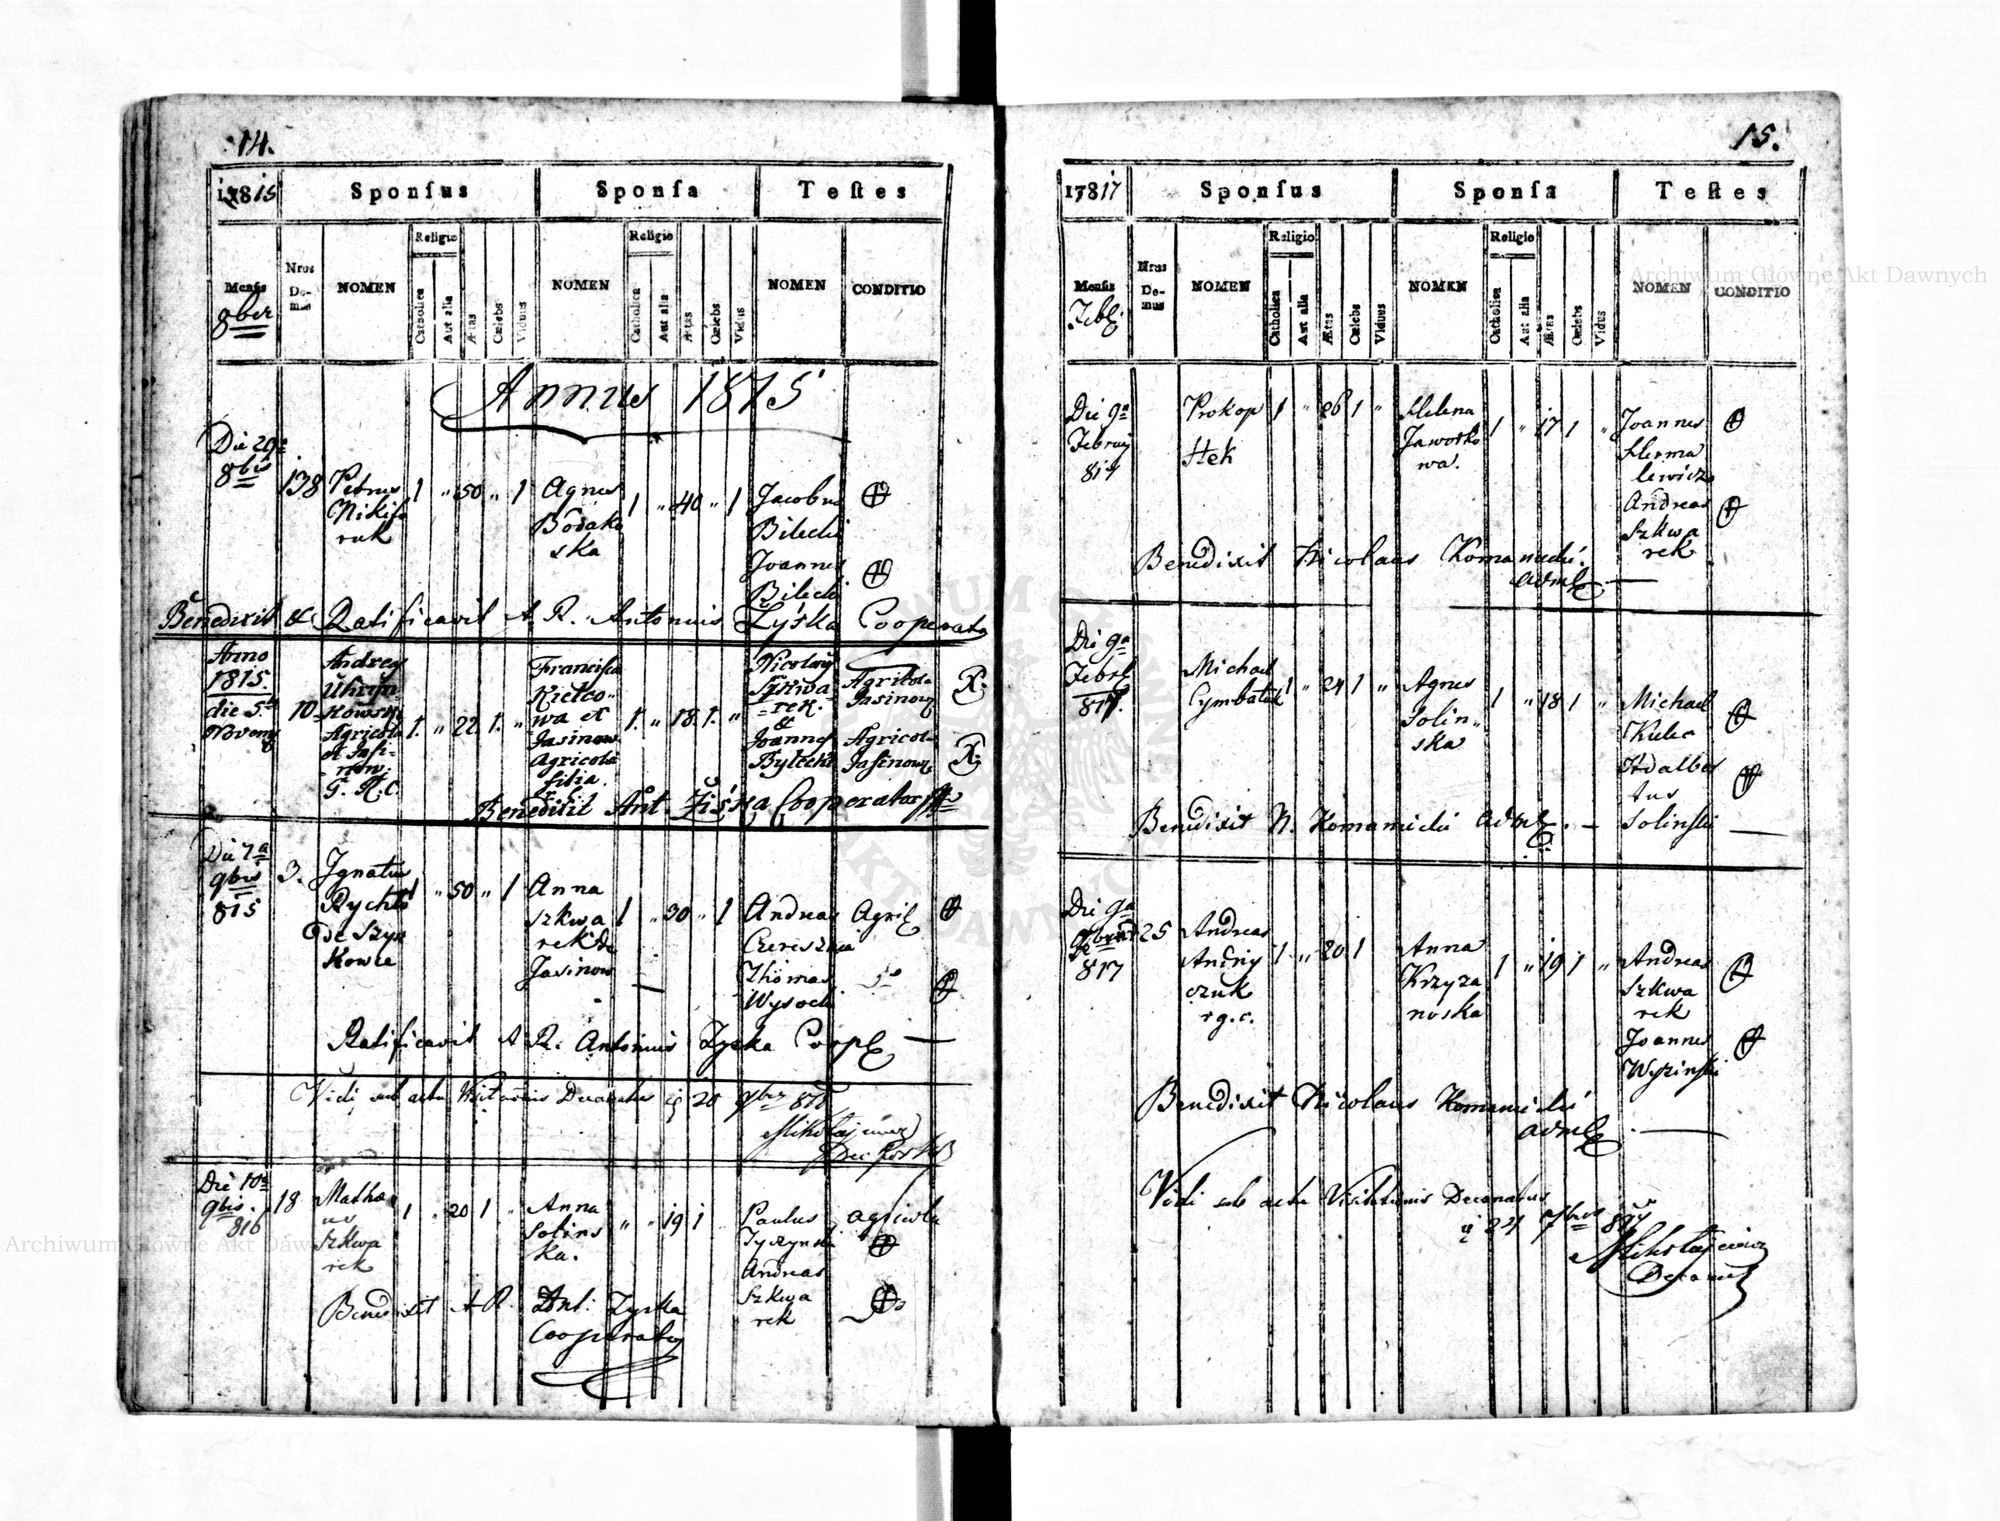 14.
17815 Sponſus Sponſa Teſtes
Menſis Nrus Do- mus NOMEN Religio Catholica Aut alia Ætas Cælebs Viduus NOMEN Religio Catholica Aut alia Ætas Cælebs Vidua NOMEN CONDITIO
8ber
Annus 1815
Die 29a
8bis 138 Petrus 1 " 50 " 1 Agnes 1 " 40 " 1 Jacobus
Nikifo Bodako Bilecki
ruk ska Joannes
Bilecki
Benedixit & Ratificavit A R. Antonius Zyśka Cooperator
Anno
1815.
die 5ta
Novem 10. Andreas
Uhryn
kowski
Agricola
G. R. C.
1. " 22. 1. "
Francisca
Kielco-
wa et
Jasinow
Agricola
filia
1. " 18. 1. "
Nicolaus
Szkwa-
rek.
&
Joannes
Bylecki
Agricola
Jasinow
Agricola
Jasinow
Benedixit Ant. Ziśka Cooperator
Die 7a
9bris
815
3. Ignatius
Rychto
de Szyn
kowce
1 " 50 " 1
Anna
Szkwa
rek de
Jasinow
1 " 30 " 1
Andreas Agril
Thomas
Wysocki
Ratificavit A R. Antonius Zyska Coopl
Vidi sub actu Visitationis Decanalis 20
Die 10a
9bris.
816
18 Mathæ
us
Szkwa
rek
1 " 20 1 "
Anna
Solins
ka.
" " 19 1
Paulus agricola
Tyszynski
Andreas
Szkwa
rek
Benedixit A R. Ant: Zyska
Cooperator
15.
17817 Sponſus Sponſa Teſtes
Menſis Nrus Do- mus NOMEN Religio Catholica Aut alia Ætas Cælebs Viduus NOMEN Religio Catholica Aut alia Ætas Cælebs Vidus NOMEN CONDITIO
Febr
Die 9a
Februarij
817
Prokop
Hek
1 " 26 1 "
Helena
Jaworko
wa.
1 " 17 1 "
Joannes
Herma
lewicz
Andreas
Szkwa
rek
Benedixit Nicolaus Komarnicki
adml
Die 9a
Febr
817.
Michael
Cymbaluk
1 " 24 1 "
Agnes
Solin"
ska
1 " 18 1 "
Michael
Kulec
Adalber
tus
Solinski
Benedixit N. Komarnicki adml.
Die 9a
817
25 Andreas
Andriy
czuk
r g. c.
1 " 20 1
Anna
Krzyza
noska
1 " 19 1 "
Andreas
Szkwa
rek
Joannes
Wyzinski
Benedixit Nicolaus Komarnicki
adml
Vidi sub actu Visitationis Decanalis
24 7bris 817
Mikołajewicz
Decanus
Archiwum Główne Akt Dawnych
Archiwum Główne Akt Dawnych